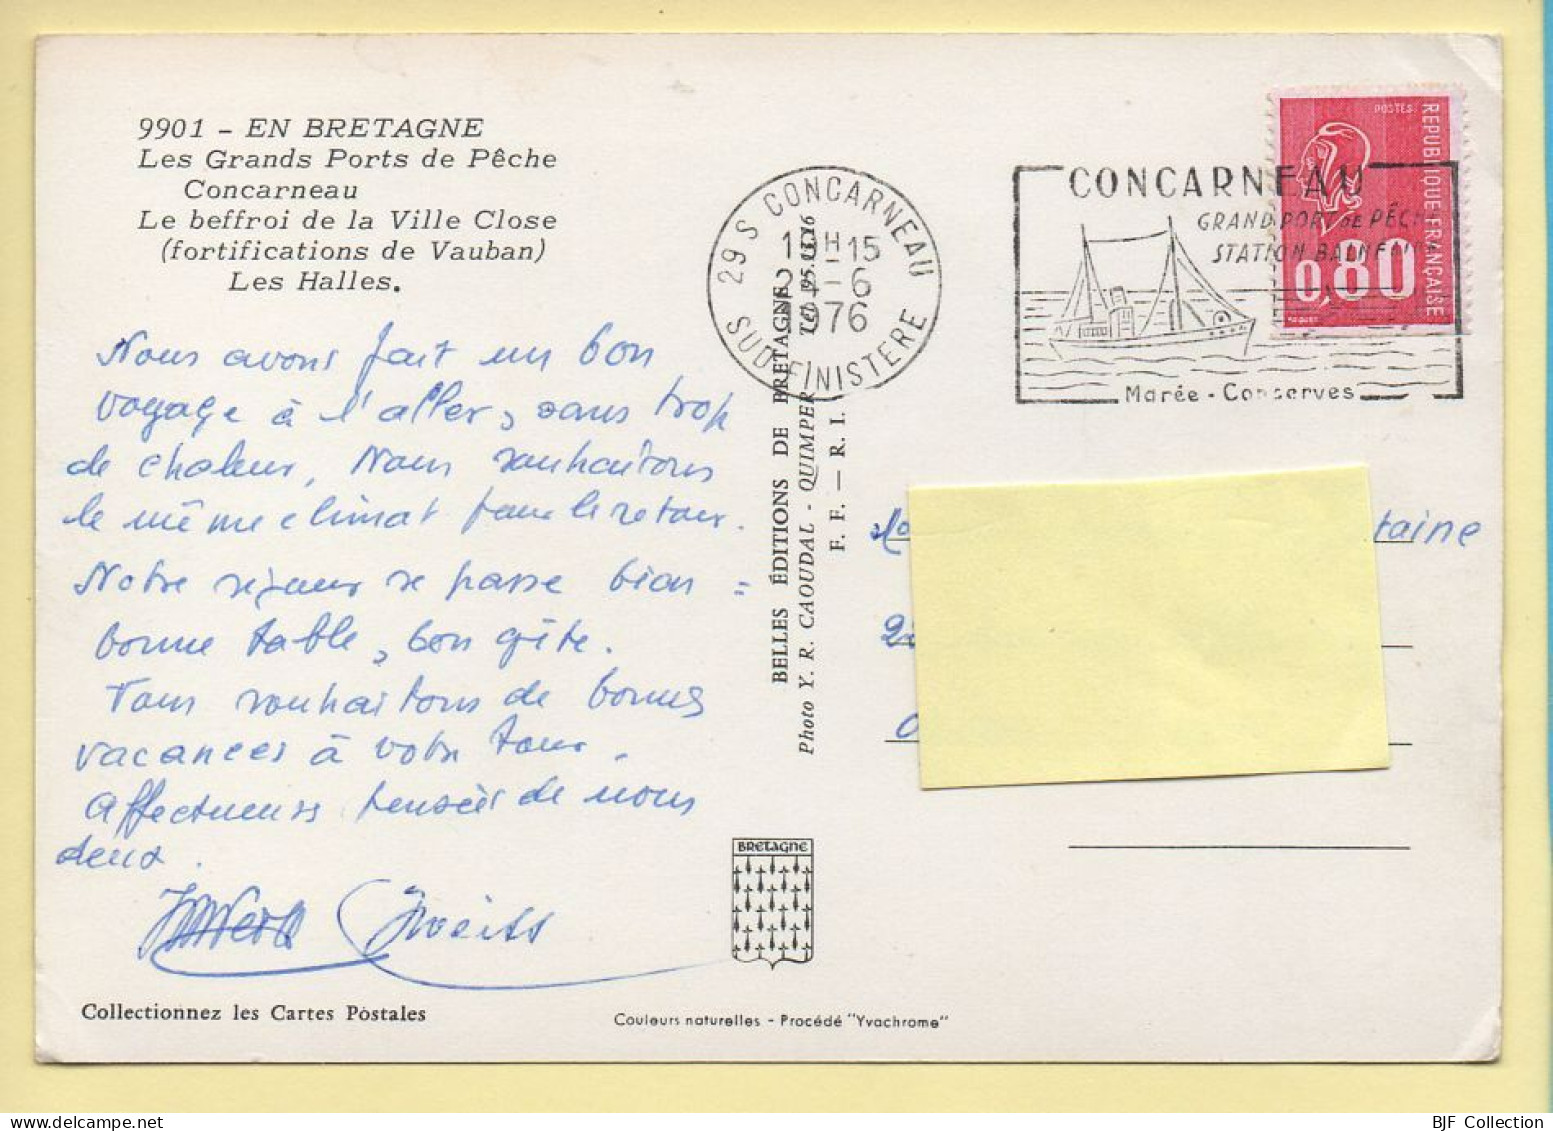 9901 - EN BRETAGNE
Les Grands Ports de Pêche
Concarneau
Le beffroi de la Ville Close
(fortifications de Vauban)
Les Halles.
Nous avons fait un bon
voyage à l'aller, sans trop
de chaleur, Nous souhaitons
le même climat pour le retour.
Notre séjour se passe bien =
bonne table, bon gîte.
Vous souhaitons de bonnes
vacances à votre tour.
Affectueuses pensées de nous
deux.
Jweiss
Collectionnez les Cartes Postales
BELLES ÉDITIONS DE BRETAGNE
Photo Y. R. CAOUDAL - QUIMPER
F. F. — R. I.
BRETAGNE
Couleurs naturelles - Procédé "Yvachrome"
29 S CONCARNEAU
H 15
24-6
1976
SUD-FINISTERE
CONCARNEAU
GRAND PORT DE PÊCHE
STATION BALNÉAIRE
Marée - Conserves
POSTES
REPUBLIQUE FRANÇAISE
0,80
taine
BJF Collection